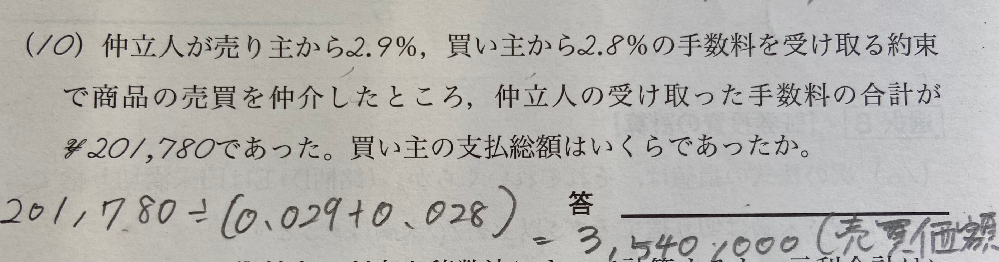 (10) 仲立人が売り主から2.9%, 買い主から2.8%の手数料を受け取る約束
で商品の売買を仲介したところ, 仲立人の受け取った手数料の合計が
¥201,780であった。買い主の支払総額はいくらであったか。
答
201,780÷(0.029+0.028)
=3,540,000(売買価額